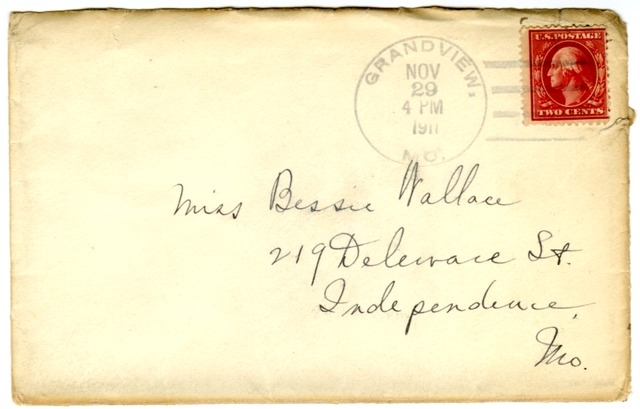 GRANDVIEW,
NOV
29
4 PM
1911
MO.
U.S. POSTAGE
TWO CENTS
Miss Bessie Wallace
219 Deleware St.
Independence,
Mo.